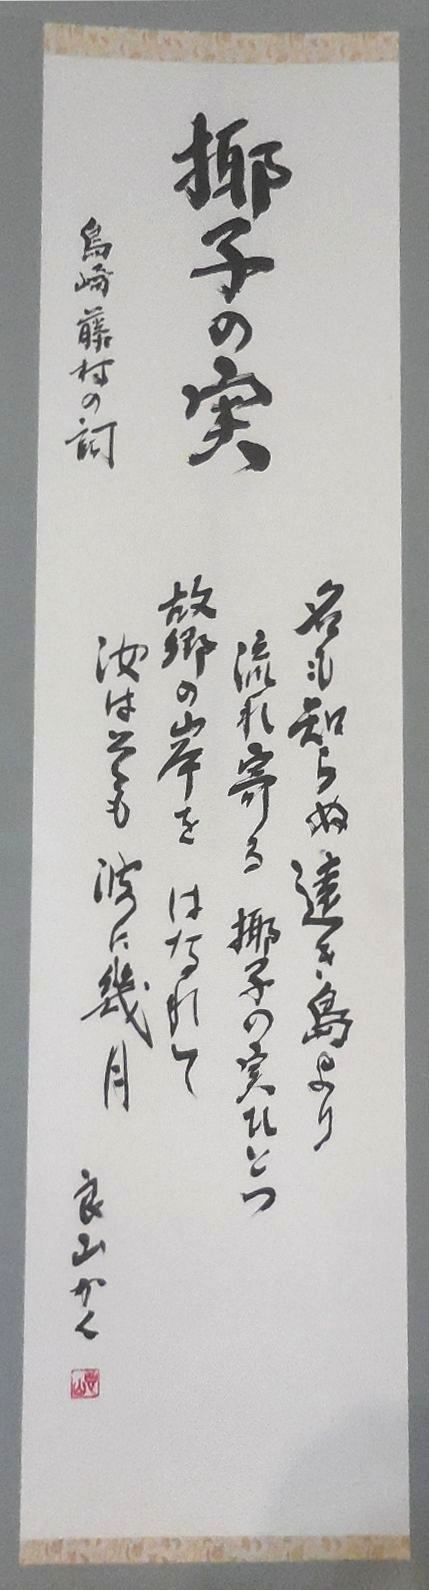 椰子の実
島崎藤村の詞
名も知らぬ遠き島より
流れ寄る 椰子の実ひとつ
故郷の岸を はなれて
汝はそも 波に幾月
良山かく